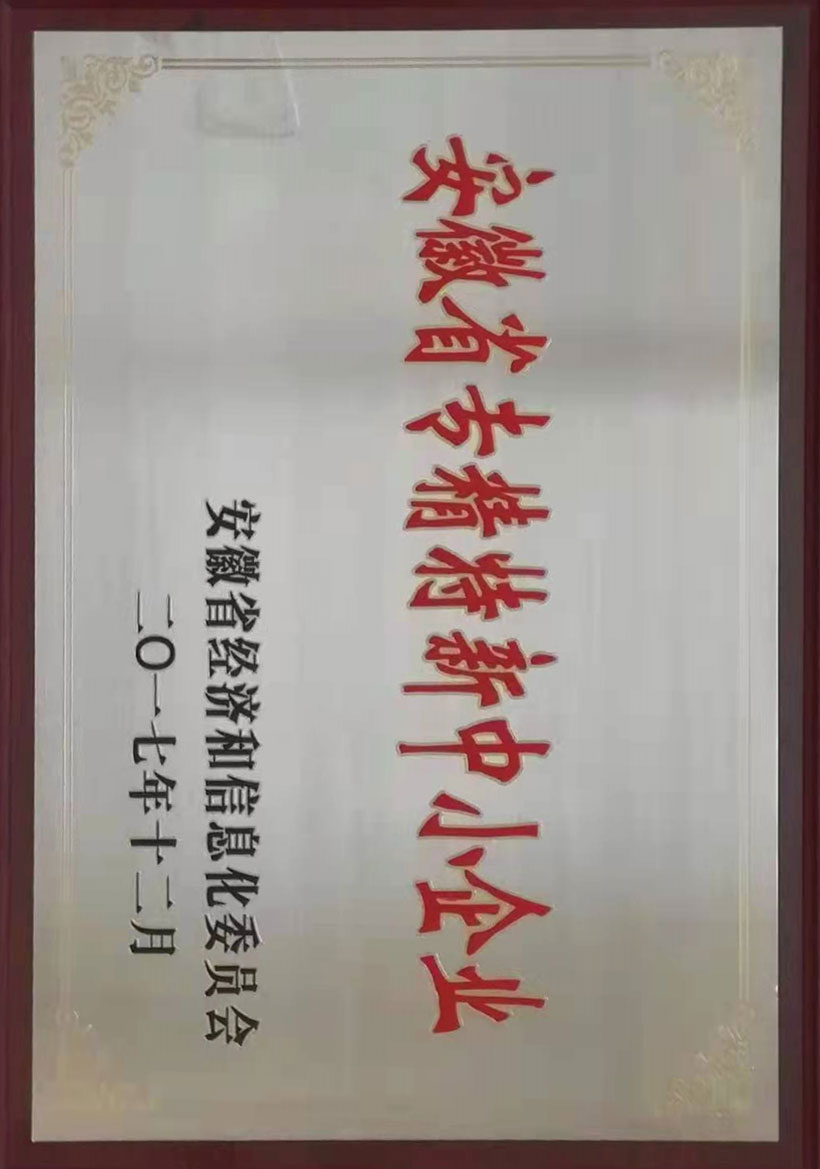 安徽省专精特新中小企业
安徽省经济和信息化委员会
二〇一七年十二月